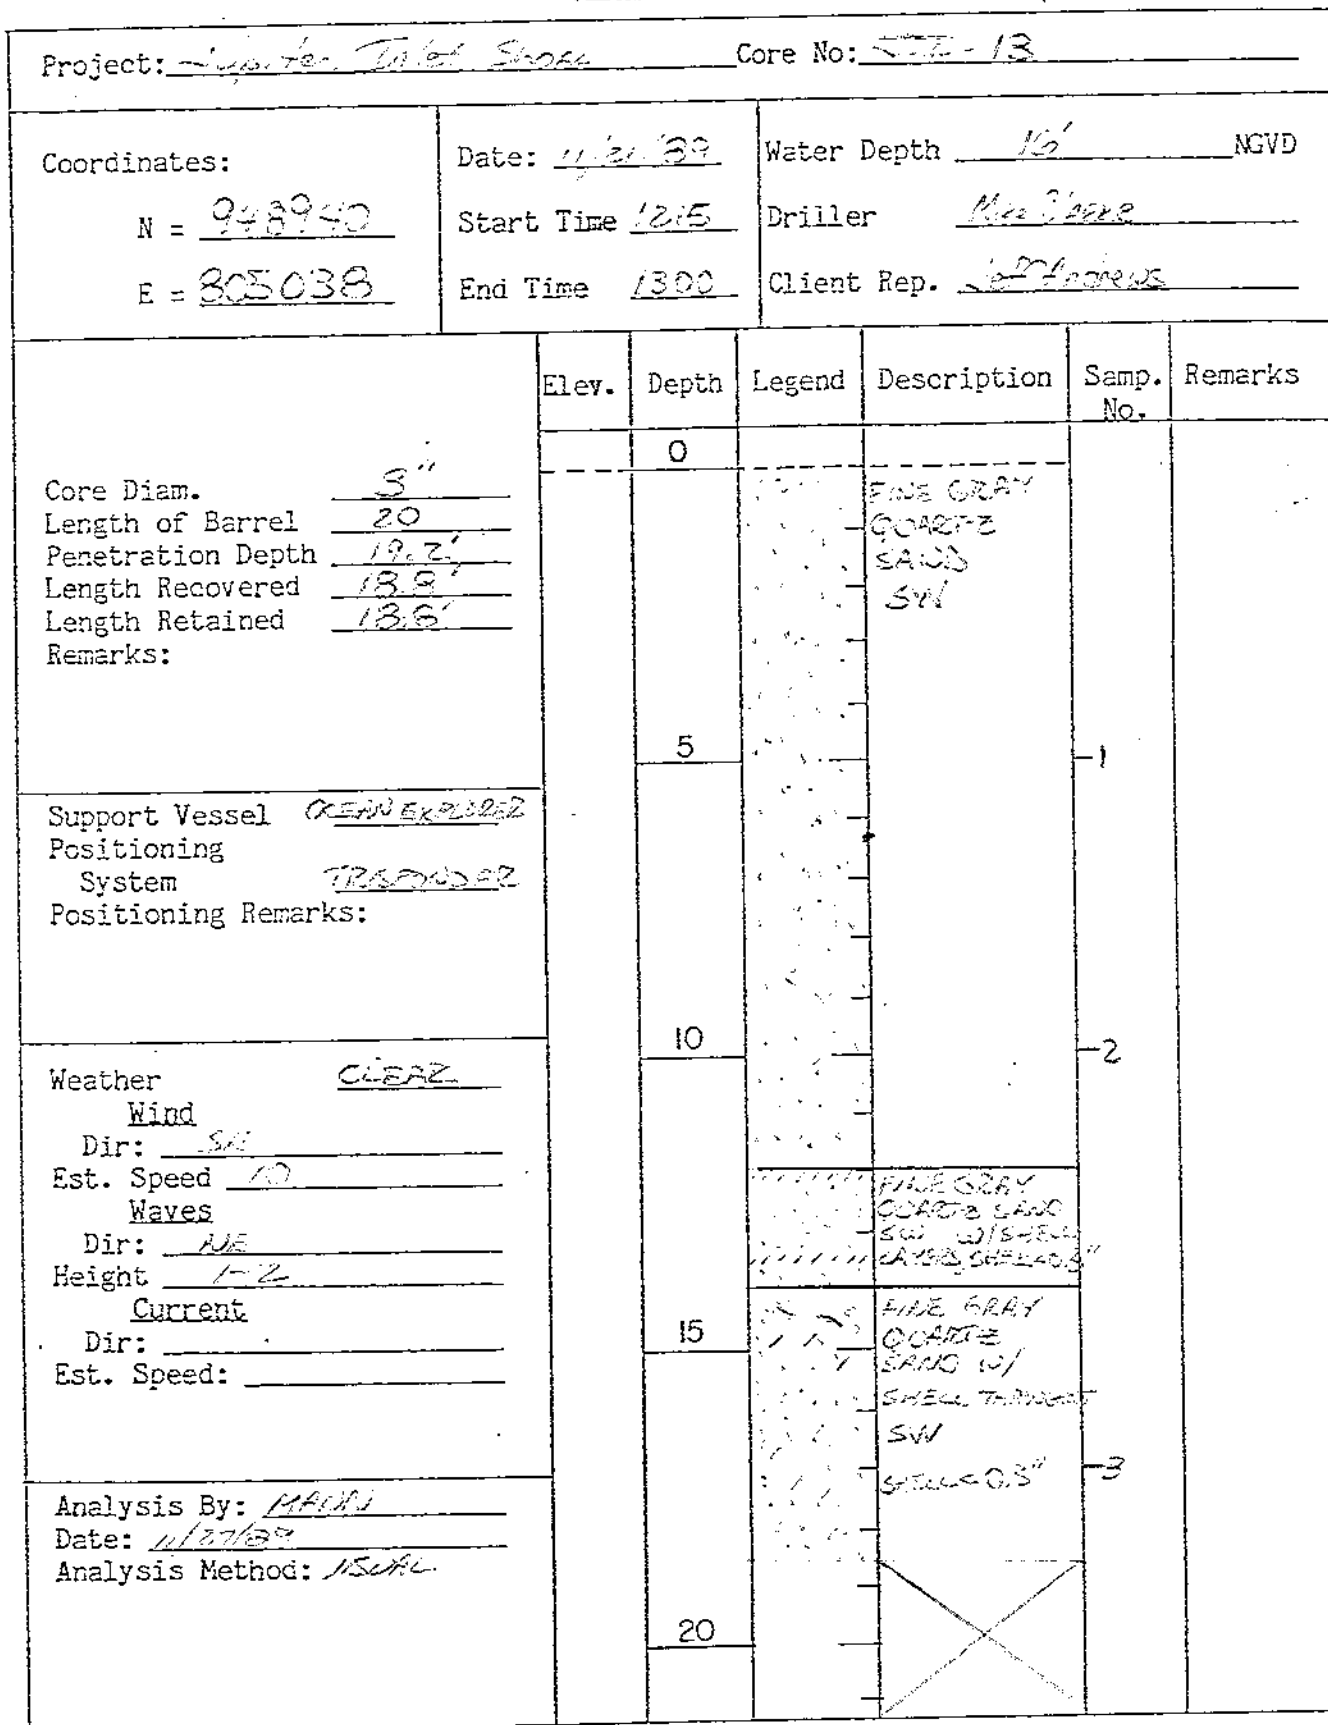 Project: Jupiter Inlet Shoal Core No: -13
Coordinates:
N = 948940
E = 805038
Date: 11/21/89
Start Time 1215
End Time 1300
Water Depth 16' NGVD
Driller
Client Rep. Jeff Andrews
Elev. Depth Legend Description Samp. No. Remarks
Core Diam. 3"
Length of Barrel 20
Penetration Depth 19.2'
Length Recovered 18.8'
Length Retained 18.6'
Remarks:
Support Vessel OCEAN EXPLORER
Positioning
System TRISPONDER
Positioning Remarks:
Weather CLEAR
Wind
Dir: 
Est. Speed 10
Waves
Dir: NE
Height 1-2
Current
Dir:
Est. Speed:
Analysis By: MANN
Date: 11/27/89
Analysis Method: VISUAL
0
FINE GRAY
QUARTZ
SAND
SW
5
-1
10
-2
FINE GRAY
QUARTZ SAND
SW W/SHELL
LAYERS, SHELL<0.5"
15
FINE GRAY
QUARTZ
SAND W/
SHELL
SW
SHELL<0.5"
-3
20